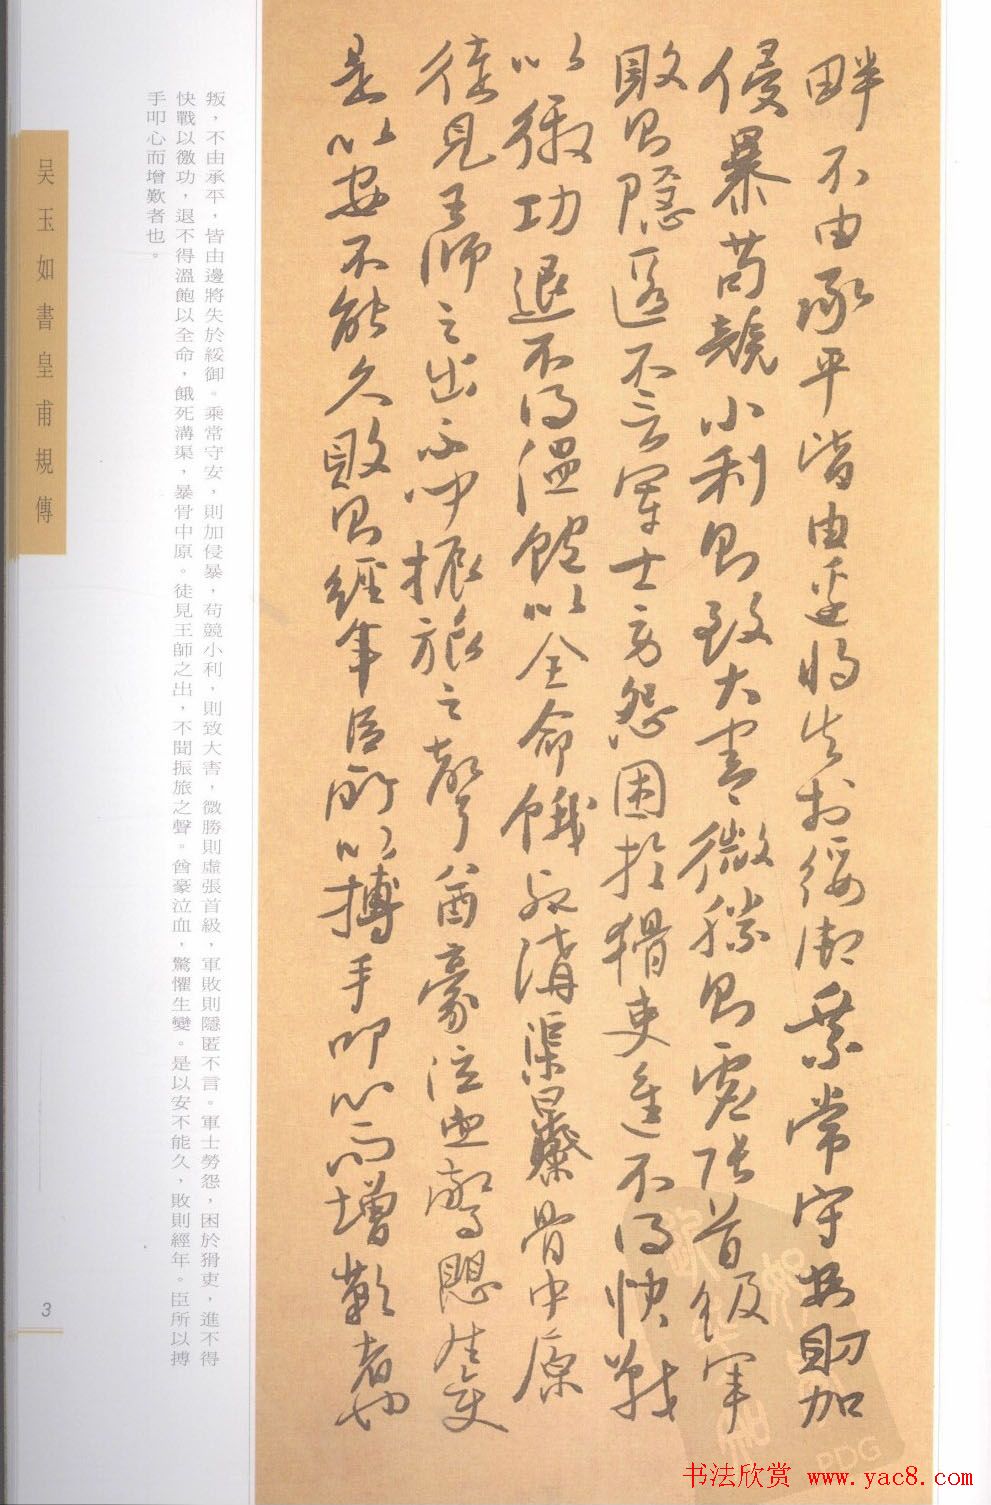 畔不由承平皆由邊將失於綏御乘常守安則加
侵暴苟競小利則致大害微勝則虛張首級軍
敗則隱匿不言軍士勞怨困於猾吏進不得快戰
以徼功退不得溫飽以全命餓死溝渠暴骨中原
徒見王師之出不聞振旅之聲酋豪泣血驚懼生變
是以安不能久敗則經年臣所以搏手叩心而增歎者也
叛，不由承平，皆由邊將失於綏御。乘常守安，則加侵暴，苟競小利，則致大害，微勝則虛張首級，軍敗則隱匿不言。軍士勞怨，困於猾吏，進不得
快戰以徼功，退不得溫飽以全命，餓死溝渠，暴骨中原。徒見王師之出，不聞振旅之聲。酋豪泣血，驚懼生變。是以安不能久，敗則經年。臣所以搏
手叩心而增歎者也。
吴玉如書皇甫規傳
3
PDG
书法欣赏 www.yac8.com